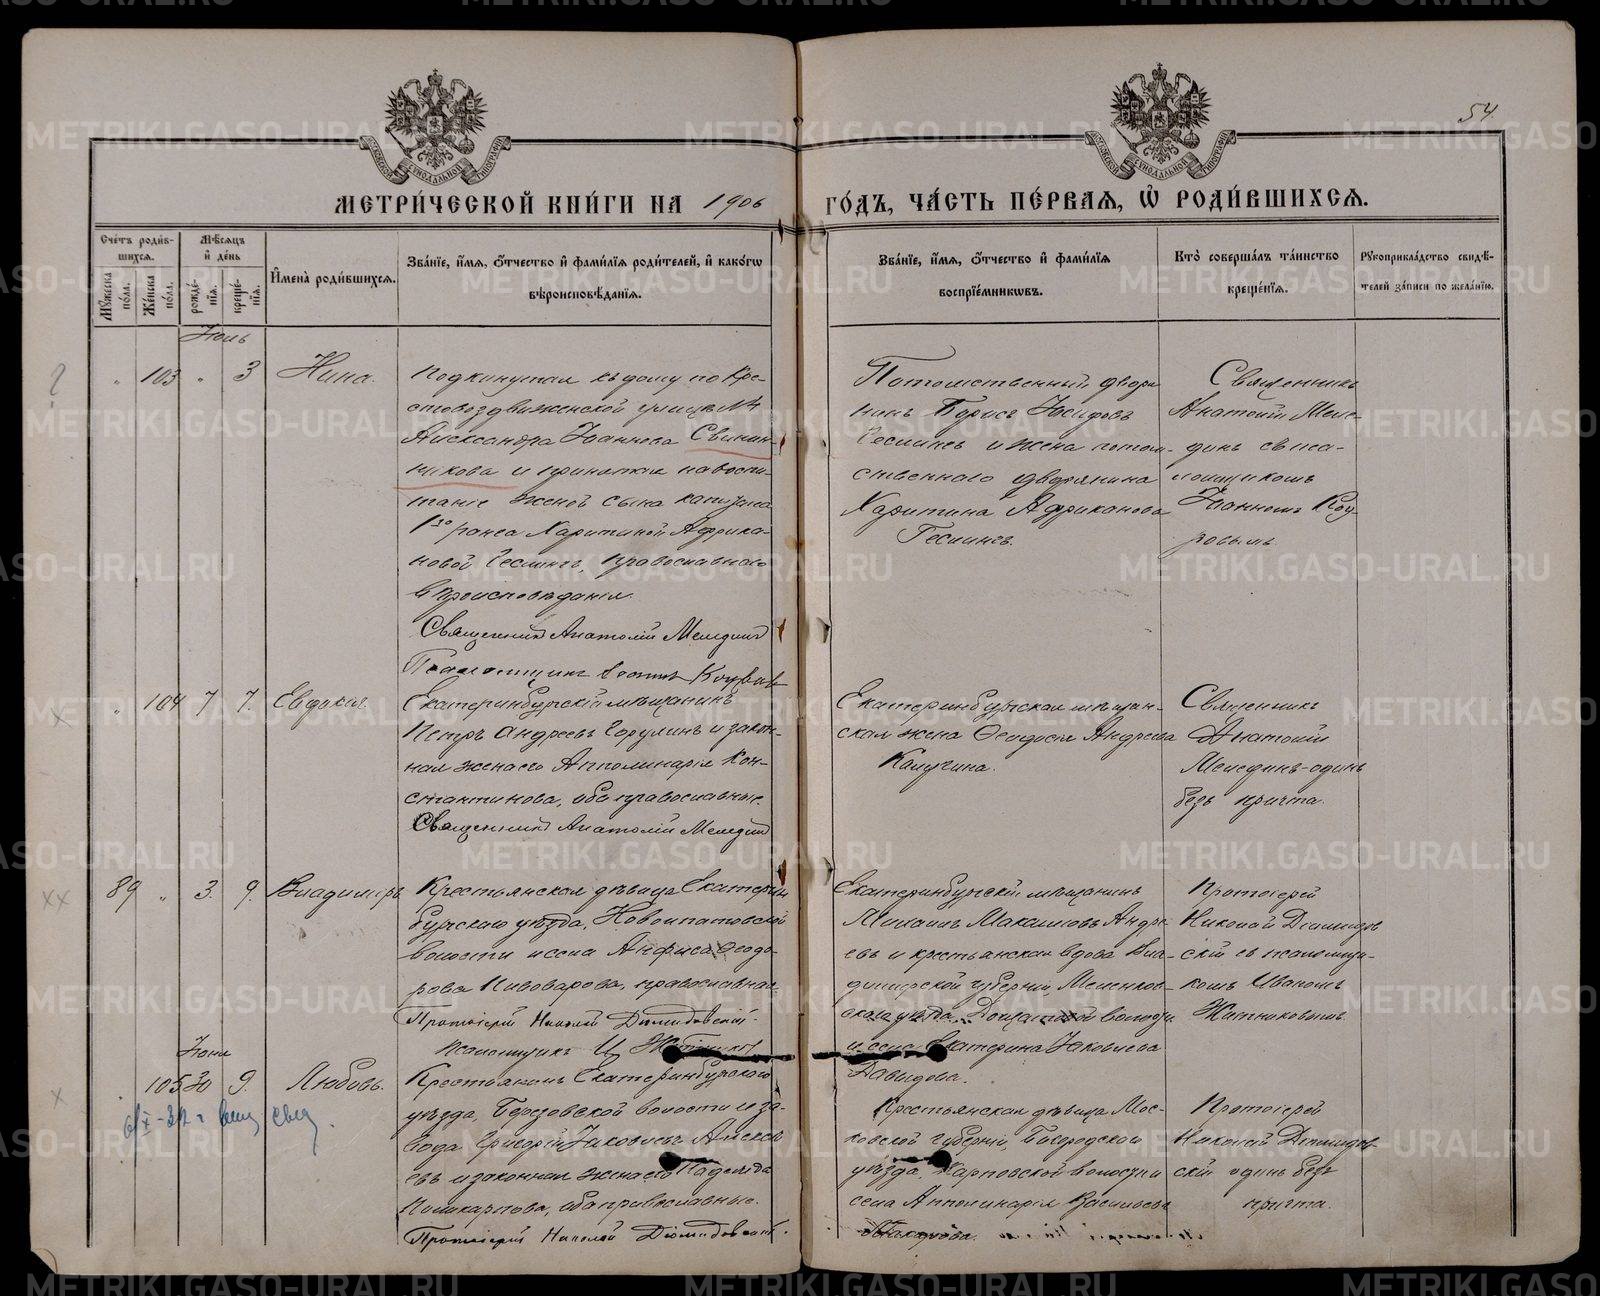 54.
МЕТРИ́ЧЕСКОЙ КНИ́ГИ НА 1906 ГО́ДЪ, ЧА́СТЬ ПЕ́РВАЯ, Ѽ РОДИ́ВШИХСЯ.
Сче́тъ роди́в-
шихся.
Мѣ́сяцъ
и҆ де́нь
Мꙋ́жеска по́ла.
Же́нска по́ла.
рожде́-
нїя.
креще́-
нїя.
И҆мена̀ роди́вшихся.
Зва́нїе, и҆́мя, ѻ҆́тчество и҆ фами́лїя роди́телей, и҆ како́гѡ
вѣроисповѣ́данїя.
Зва́нїе, и҆́мя, ѻ҆́тчество и҆ фами́лїя
воспрїе́мникѡвъ.
Кто̀ соверша́лъ та́инство
креще́нїя.
Рꙋкоприкла́дство свидѣ́-
телей за́писи по жела́нїю.
Іюль
103 " 3 Нина.
Подкинутая къ дому по Кре-
стовоздвиженской улицѣ №
Александра Іоаннова Свинин-
никова и принятая на воспи-
таніе женой сына капитана
1го ранга Харитиной Африка-
новой Геслингъ, православнаго
вѣроисповѣданія.
Священникъ Анатолій
Потомственный дворя
нинъ Борисъ Іосифовъ
и жена потом-
ственнаго дворянина
Харитина Африканова
Геслингъ.
Священникъ
Анатолій
динъ съ пса-
ломщикомъ
Іоанномъ
104 7 7. Евдокія.
Екатеринбургскій мѣщанинъ
Петръ Андреевъ и закон-
ная жена его Апполинарія Кон-
стантинова, оба православные.
Священникъ Анатолій
Екатеринбургская мѣщан-
ская жена Ѳеодосія Андреева
Калугина.
Священникъ
Анатолій
одинъ
безъ причта.
89 " 3. 9. Владиміръ
Крестьянская дѣвица Екатерин
бургскаго уѣзда, Новоипатовской
волости и села Анфиса Ѳеодо-
рова Пивоварова, православная.
Протоіерей Николай Діомидовскій.
Псаломщикъ И.
Екатеринбургскій мѣщанинъ
Михаилъ Максимовъ Андре
евъ и крестьянская вдова Вла-
димірской губерніи, Меленков-
скаго уѣзда, волости
и села Екатерина Іаковлева
Давыдова.
Протоіерей
Николай Діомидов
скій съ псаломщи-
комъ Иваномъ
Житниковымъ
Іюня
105 30 9. Любовь.
Крестьянинъ Екатеринбургскаго
уѣзда, Березовской волости и за-
вода Григорій Іаковлевъ Алексѣ
евъ и законная жена его Надежда
Поликарпова, оба православные.
Протоіерей Николай Діомидовскій.
Крестьянская дѣвица Мос-
ковской губерніи, Богородскаго
уѣзда, Карповской волости и
села Апполинарія Васильева
Протоіерей
Николай Діомидов-
скій одинъ безъ
причта.
METRIKI.GASO-URAL.RU